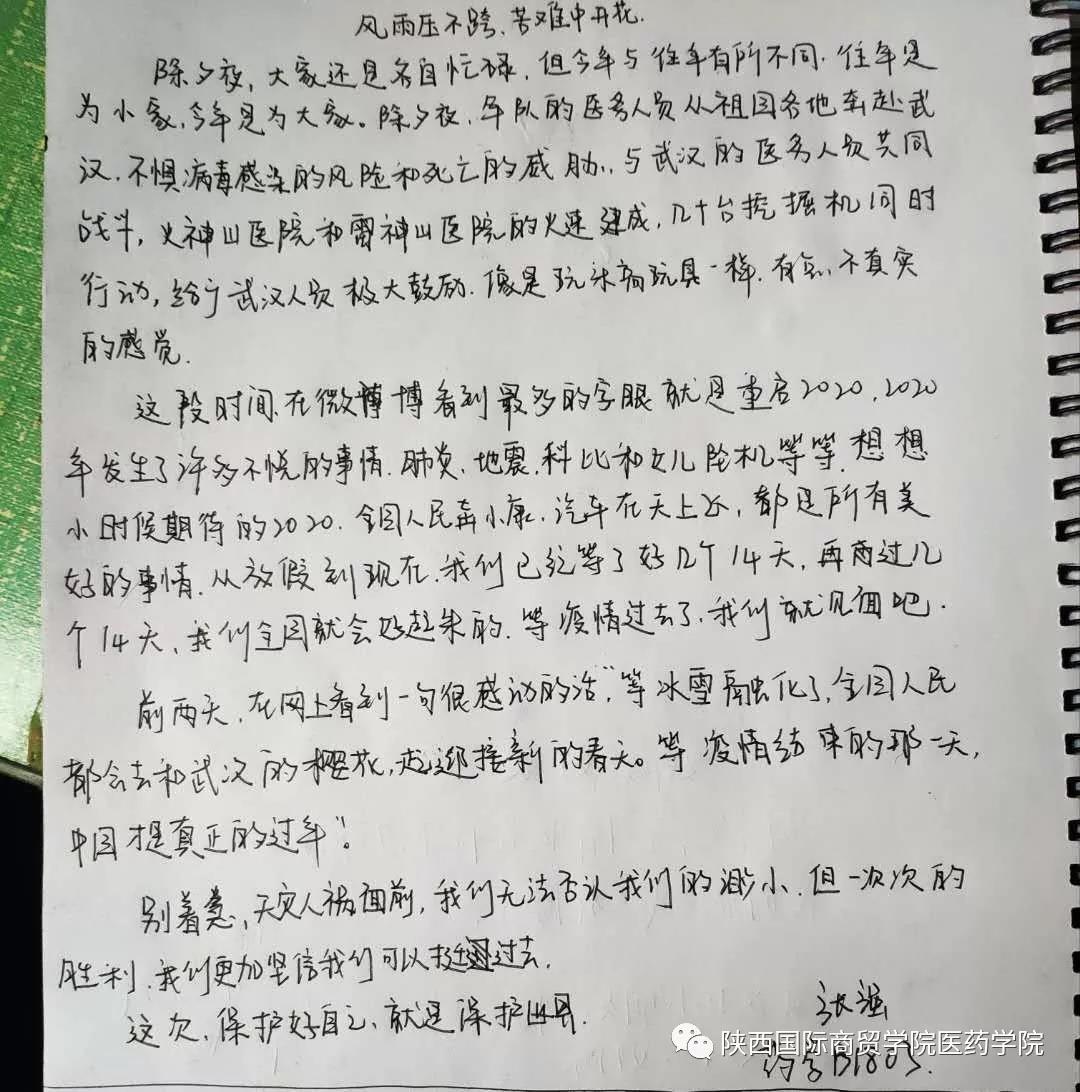 风雨压不跨、苦难中开花.
除夕夜，大家还是各自忙碌，但今年与往年有所不同.往年是
为小家，今年是为大家。除夕夜，军队的医务人员从祖国各地奔赴武
汉.不惧病毒感染的风险和死亡的威胁.与武汉的医务人员共同
战斗，火神山医院和雷神山医院的火速建成，几十台挖掘机同时
行动，给了武汉人员极大鼓励.像是玩乐高玩具一样.有点不真实
的感觉.
这段时间.在微博看到最多的字眼就是重启2020，2020
年发生了许多不悦的事情.肺炎、地震.科比和女儿坠机等等.想想
小时候期待的2020.全国人民奔小康.汽车在天上飞，都是所有美
好的事情.从放假到现在.我们已经等了好几个14天，再两过几
个14天、我们全国就会好起来的.等疫情过去了.我们就见面吧.
前两天.在网上看到一句很感动的话，“等冰雪融化了，全国人民
都会去和武汉的樱花，迎接新的春天。等疫情结束的那一天，
中国才是真正的过年”。
别着急，天灾人祸面前，我们无法否认我们的渺小.但一次次的
胜利.我们更加坚信我们可以挺过去.
这次.保护好自己、就是保护世界.
张强
药学B1803.
陕西国际商贸学院医药学院